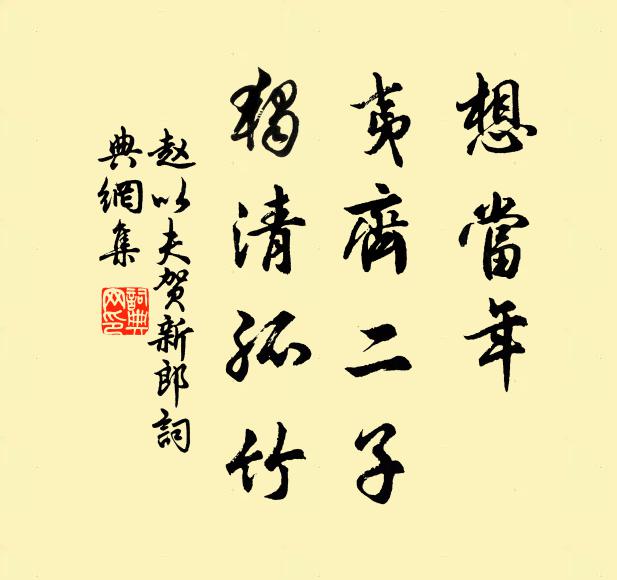 想當年
夷齊二子
獨清孤竹
赵以夫贺新郎詞
典網集
詞典
网印